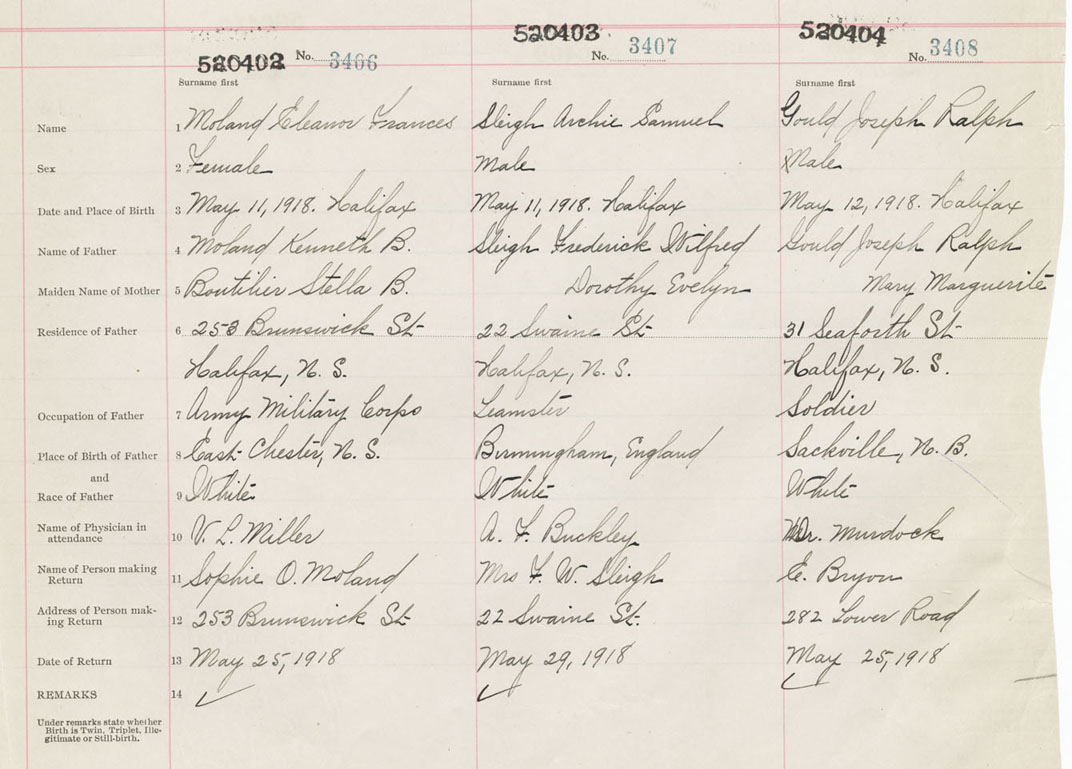 520402 No. 3406 520403 No. 3407 520404 No. 3408
Surname first Surname first Surname first
Name 1 Moland Eleanor Frances Sleigh Archie Samuel Gould Joseph Ralph
Sex 2 Female Male Male
Date and Place of Birth 3 May 11, 1918. Halifax May 11, 1918. Halifax May 12, 1918. Halifax
Name of Father 4 Moland Kenneth B. Sleigh Frederick Wilfred Gould Joseph Ralph
Maiden Name of Mother 5 Boutilier Stella B. Dorothy Evelyn Mary Marguerite
Residence of Father 6 253 Brunswick St 22 Swaine St 31 Seaforth St
Halifax, N. S. Halifax, N. S. Halifax, N. S.
Occupation of Father 7 Army Military Corps Teamster Soldier
Place of Birth of Father 8 East Chester, N. S. Birmingham, England Sackville, N. B.
and
Race of Father 9 White White White
Name of Physician in
attendance 10 V. L. Miller A. F. Buckley Dr. Murdock
Name of Person making
Return 11 Sophie O. Moland Mrs F. W. Sleigh E. Bryon
Address of Person mak-
ing Return 12 253 Brunswick St 22 Swaine St. 282 Lower Road
Date of Return 13 May 25, 1918 May 29, 1918 May 25, 1918
REMARKS 14
Under remarks state whether
Birth is Twin, Triplet, Ille-
gitimate or Still-birth.